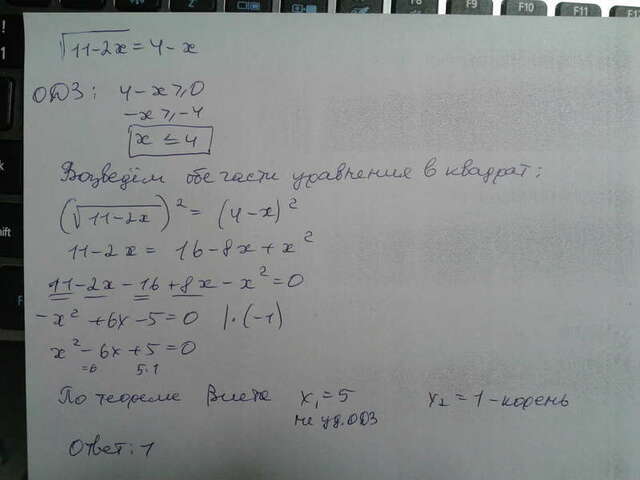 F8
F9
F10
F11
F12
√11-2x = 4-x
ОДЗ: 4-x≥0
-x≥-4
x≤4
Возведём обе части уравнения в квадрат:
(√11-2x)² = (4-x)²
11-2x = 16-8x+x²
11-2x-16+8x-x²=0
-x²+6x-5=0 |·(-1)
x²-6x+5=0
=6 5·1
По теореме Виета x₁=5 x₂=1-корень
не уд. ОДЗ
Ответ: 1